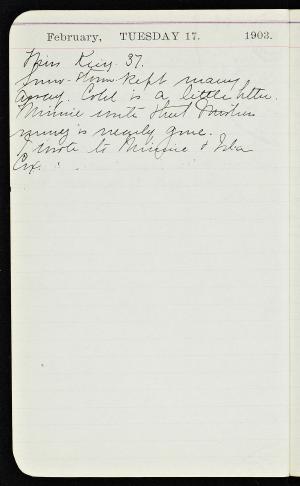 February, TUESDAY 17. 1903.
Miss King. 37.
Snow-storm kept many
away Cold is a little better.
Minnie writes that Mother's
money is nearly gone.
I wrote to Minnie & Ida
Cox.